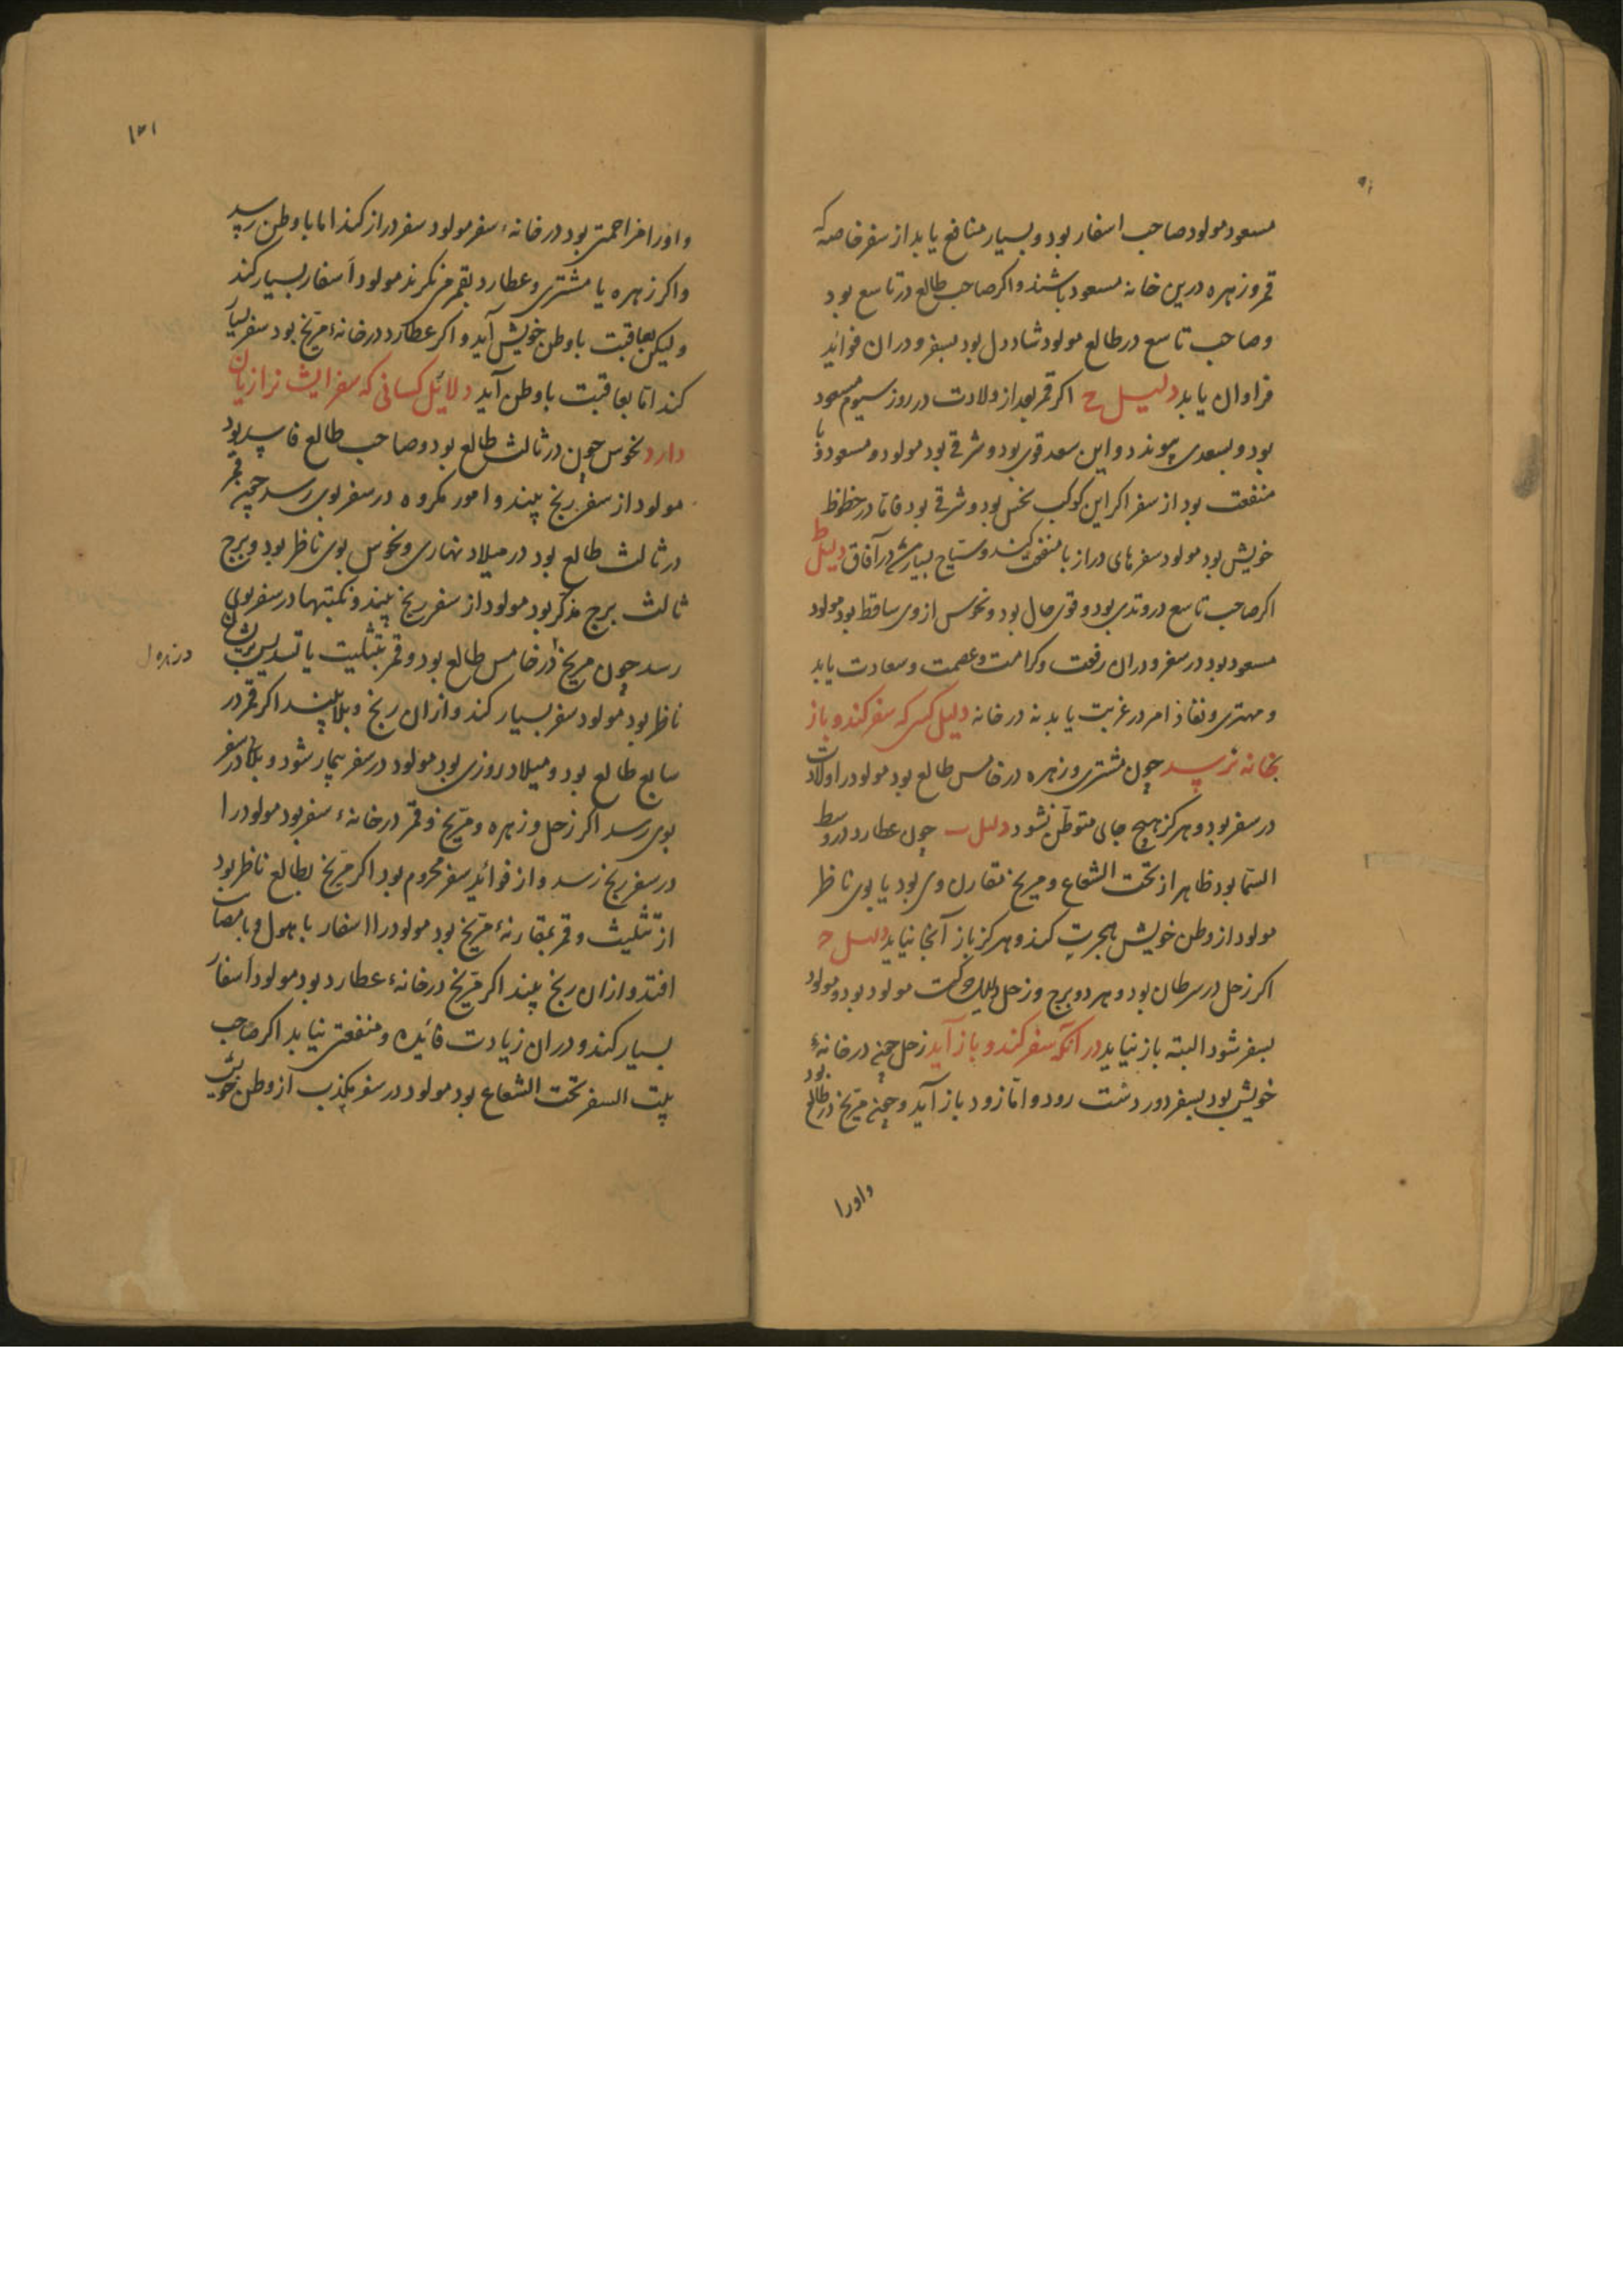 مسعود مولود صاحب اسفار بود و بسیار منافع یابد از سفر خاصه که
قمر و زهره درین خانه مسعود باشند و اکر صاحب طالع در تاسع بود
و صاحب تاسع در طالع مولود شاددل بود بسفر و دران فواید
فراوان یابد دلیل ح اکر قمر بعد از ولادت در روز سیوم مسعود
بود و بسعدی پیوندد و این سعد قوی بود و شرقی بود مولود و مسعود و با
منفعت بود از سفر اکر این کوکب نحس بود و شرقی بود فاما در حظوظ
خویش بود مولود سفرهای دراز با منفعت کند و سیاح بسیار شود در آفاق دلیل ط
اکر صاحب تاسع در وتدی بود و قوی حال بود و نحوس از وی ساقط بود مولود
مسعود بود در سفر و دران رفعت و کرامت و عصمت و سعادت یابد
و مهتری و نفاذ امر در غربت یابد نه در خانه دلیل کسی که سفر کند و باز
بخانه نرسد چون مشتری و زهره در خامس طالع بود مولود را ولادت
در سفر بود و هرکز هیچ جای متوطن نشود دلیل ب چون عطارد در وسط
السما بود ظاهر از تحت الشعاع و مریخ مقارن وی بود یا بوی ناظر
مولود از وطن خویش هجرت کند و هرکز باز آنجا نیاید دلیل ح
اکر زحل در سرطان بود و هر دو برج و زحل دلیل حرکت مولود بود و مولود
بسفر شود البته باز نیاید در آنکه سفر کند و باز آید زحل چون در خانهٔ
خویش بود بسفر دور دست رود و اما زود باز آید و چون مریخ در طالع بود
و او را
۱۲۱
و او را مزاحمتی بود در خانهٔ سفر مولود سفر دراز کند اما باوطن رسد
و اکر زهره یا مشتری و عطارد بقمر می نکرند مولود اسفار بسیار کند
و لیکن بعاقبت باوطن خویش آید و اکر عطارد در خانهٔ مریخ بود سفر بسیار
کند اما بعاقبت باوطن آید دلائل کسانی که سفر ایشانرا زیان
دارد نحوس چون در ثالث طالع بود و صاحب طالع فاسد بود
مولود از سفر رنج بیند و امور مکروه در سفر بوی رسد چون قمر
در ثالث طالع بود در میلاد نهاری و نحوس بوی ناظر بود و برج
ثالث برج مذکر بود مولود از سفر رنج بیند و نکبتها در سفر بوی
رسد چون مریخ در خامس طالع بود و قمر بتثلیث یا تسدیس بریشان
ناظر بود مولود سفر بسیار کند و ازان رنج و بلا بیند اکر قمر در
سابع طالع بود و میلاد روزی بود مولود در سفر بیمار شود و بلا در سفر
بوی رسد اکر زحل و زهره و مریخ و قمر در خانهٔ سفر بود مولود را
در سفر رنج رسد و از فواید سفر محروم بود اکر مریخ بطالع ناظر بود
از تثلیث و قمر بمقارنهٔ مریخ بود مولود را اسفار با هول و با مصائب
افتد و ازان رنج بیند اکر مریخ در خانهٔ عطارد بود مولود اسفار
بسیار کند و دران زیادت فائده و منفعتی نیابد اکر صاحب
بیت السفر تحت الشعاع بود مولود در سفر بکذب از وطن خویش